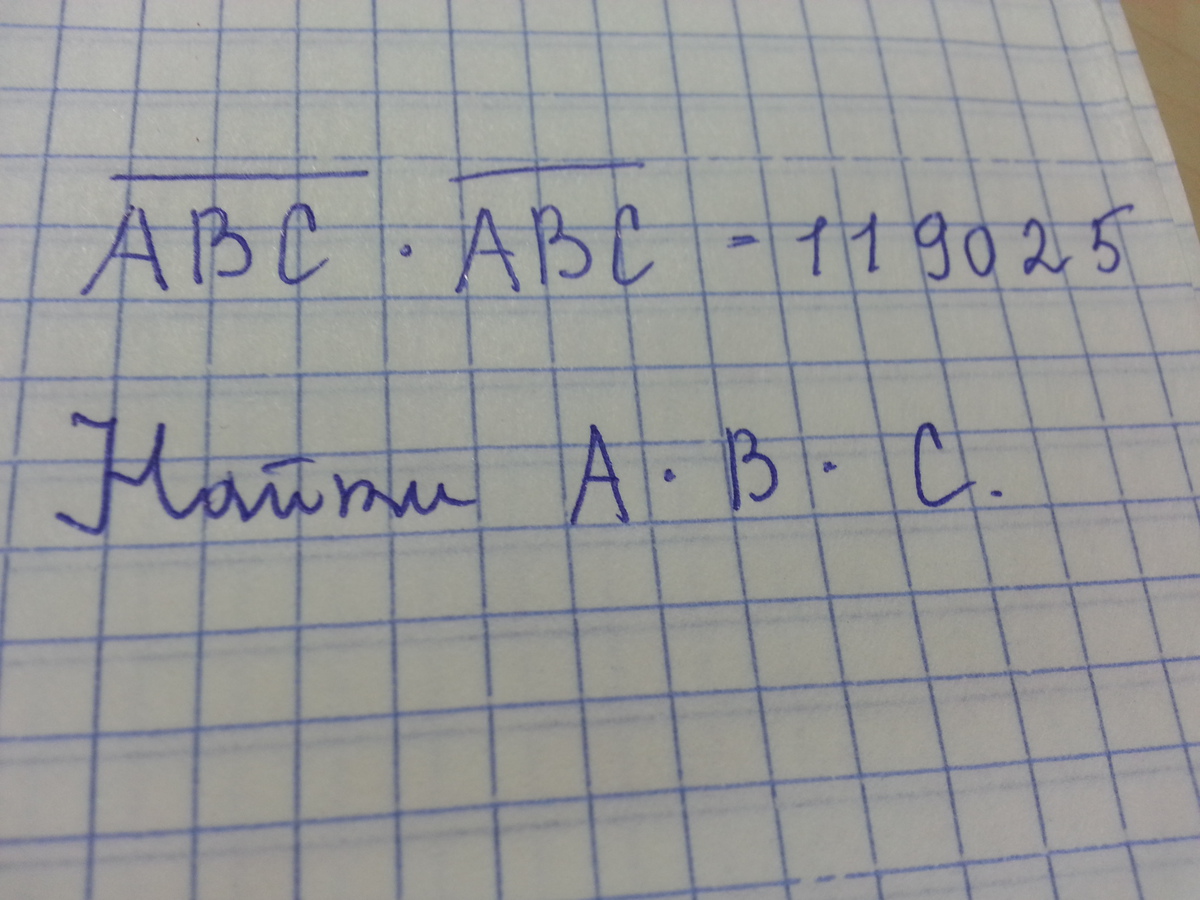 ABC · ABC = 119025
Найти A · B · C.